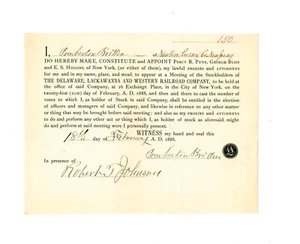 150
I, Pemberton Britton
DO HEREBY MAKE, CONSTITUTE AND APPOINT PERCY R. PYNE, GEORGE BLISS
AND E. S. HIGGINS, OF NEW YORK, (or either of them), my lawful PROXIES AND ATTORNEYS
for me and in my name, place, and stead, to appear at a Meeting of the Stockholders of
THE DELAWARE, LACKAWANNA AND WESTERN RAILROAD COMPANY, to be held at the
office of said Company, at 26 Exchange Place, in the City of New York, on the
twenty-first (21st) day of February, A. D. 1888, and then and there to cast the number of
votes to which I, as holder of Stock in said Company, shall be entitled in the election
of officers and managers of said Company, and likewise in reference to any other matter
or thing that may be brought before said meeting; and also as my PROXIES AND ATTORNEYS
to do and perform any other act or thing which I, as holder of stock as aforesaid might
do and perform at said meeting were I personally present.
WITNESS my hand and seal this
February A. D. 1888.
Pemberton Britton
In presence of
Robert T. Johnson